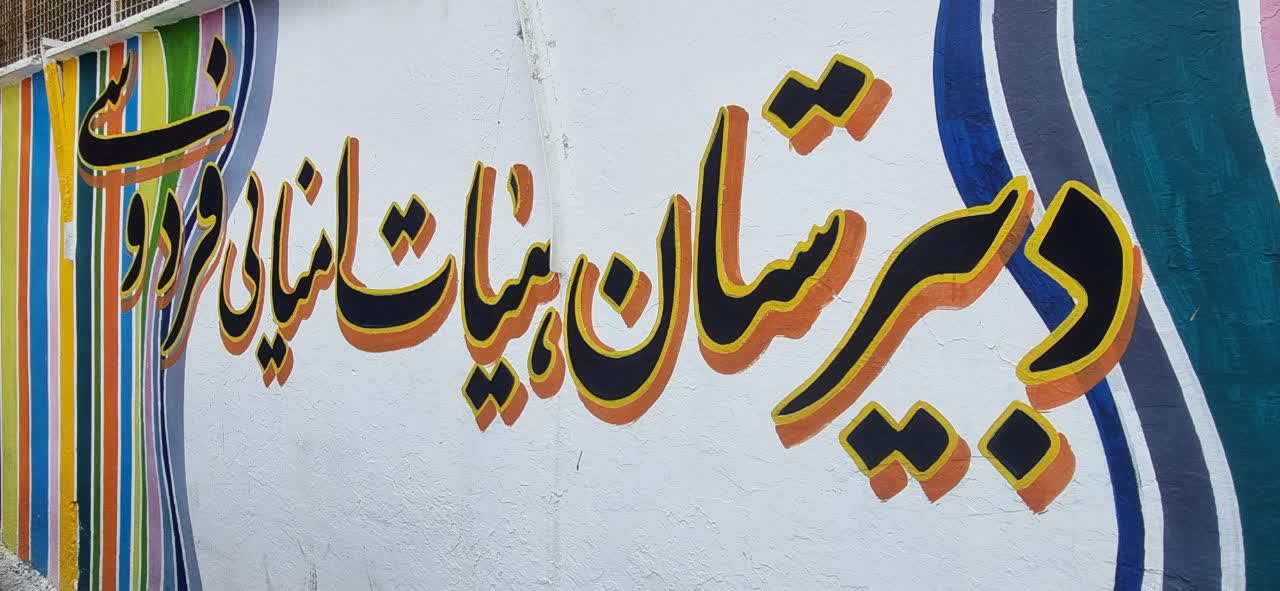 دبیرستان هیئات امنایی فردوسی